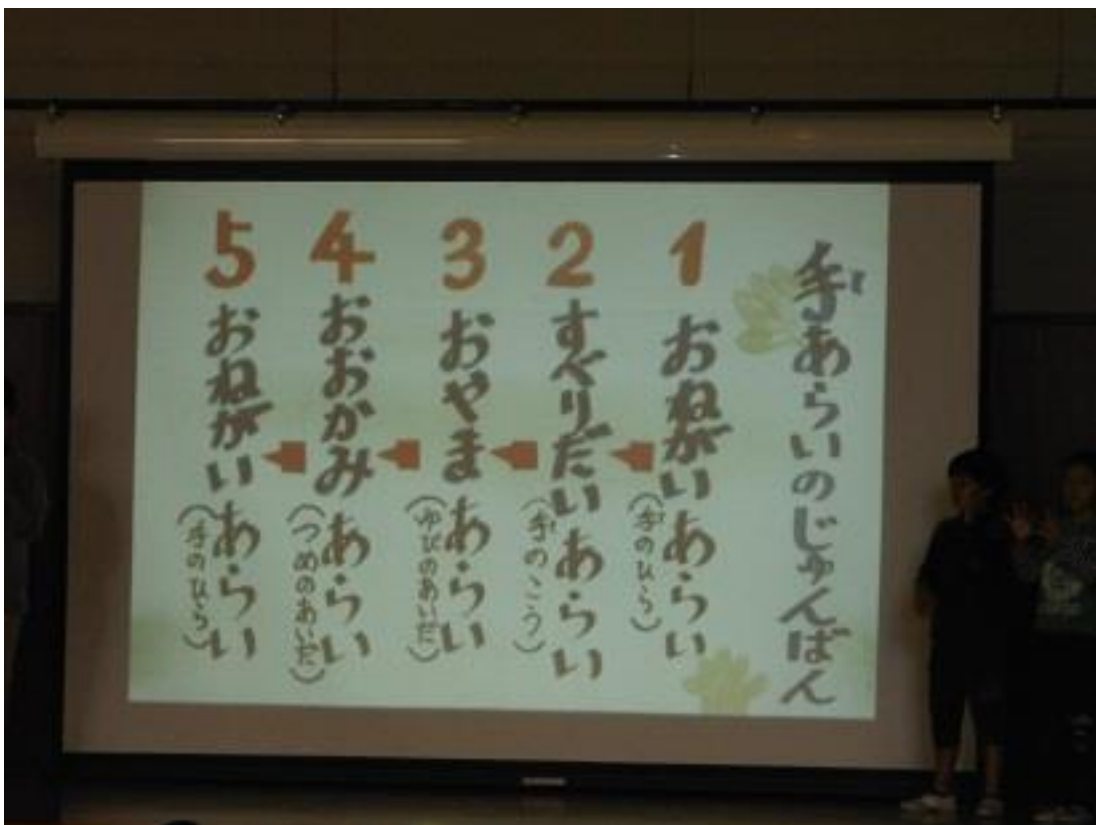 手あらいのじゅんばん
1 おねがいあらい
(手のひら)
2 すべりだいあらい
(手のこう)
3 おやまあらい
(ゆびのあいだ)
4 おおかみあらい
(つめのあいだ)
5 おねがいあらい
(手のひら)